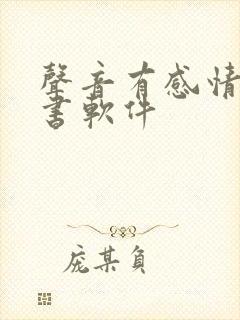 聲音有感情
書軟件
庞某負